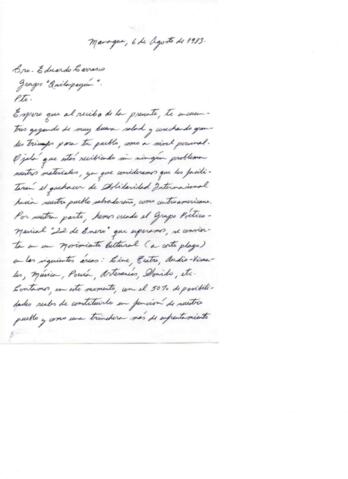 Managua, 6 de Agosto de 1983.
Cro. Eduardo Carrasco
Grupo "Quilapayún".
Pte.
Espero que al recibo de la presente, te encuen-
tres gozando de muy buena salud y cosechando gran-
des triunfos para tu pueblo, como a nivel personal.
Ojalá que estés recibiendo sin ningún problema
nuestros materiales, ya que consideramos que les facili-
tarán el quehacer de Solidaridad Internacional
hacia nuestro pueblo salvadoreño, como centroamericano.
Por nuestra parte, hemos creado el Grupo Poético-
Musical "22 de Enero" que esperamos, se convier-
ta en un Movimiento Cultural (a corto plazo)
en las siguientes áreas: Cine, Teatro, Audio-Visua-
les, Música, Poesía, Artesanías, Sonido, etc.
Contamos, en este momento, con el 50% de posibili-
dades reales de constituirlo en función de nuestro
pueblo y como una trinchera más de enfrentamiento